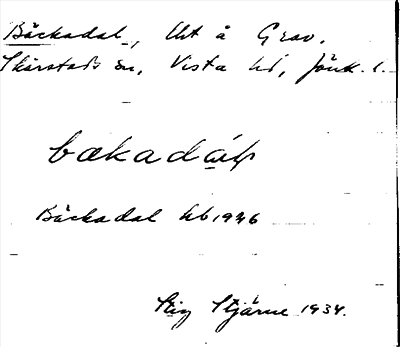 Bäckadal, Uht å Grav.
Skärstads sn, Vista hd, Jönk. l.
bækadál
Bäckadal hb 1926
Stig Stjärne 1934.